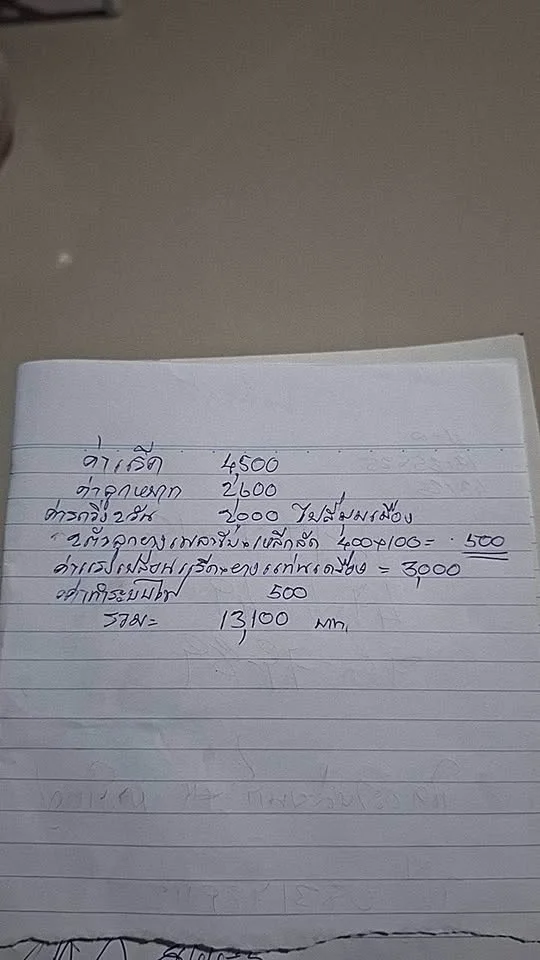 ค่าเครื่อง 4,500
ค่าลูกหมาก 2,600
ค่ารถวิ่ง 2 วัน 2,000 ไปสี่มุมเมือง
2 ตัวลูกยางเพลาขับ+เหล็กลัด 400+100= 500
ค่าแรงเปลี่ยน + ยางแท่นเครื่อง = 3,000
ค่าทำระบบไฟ 500
รวม= 13,100 บาท